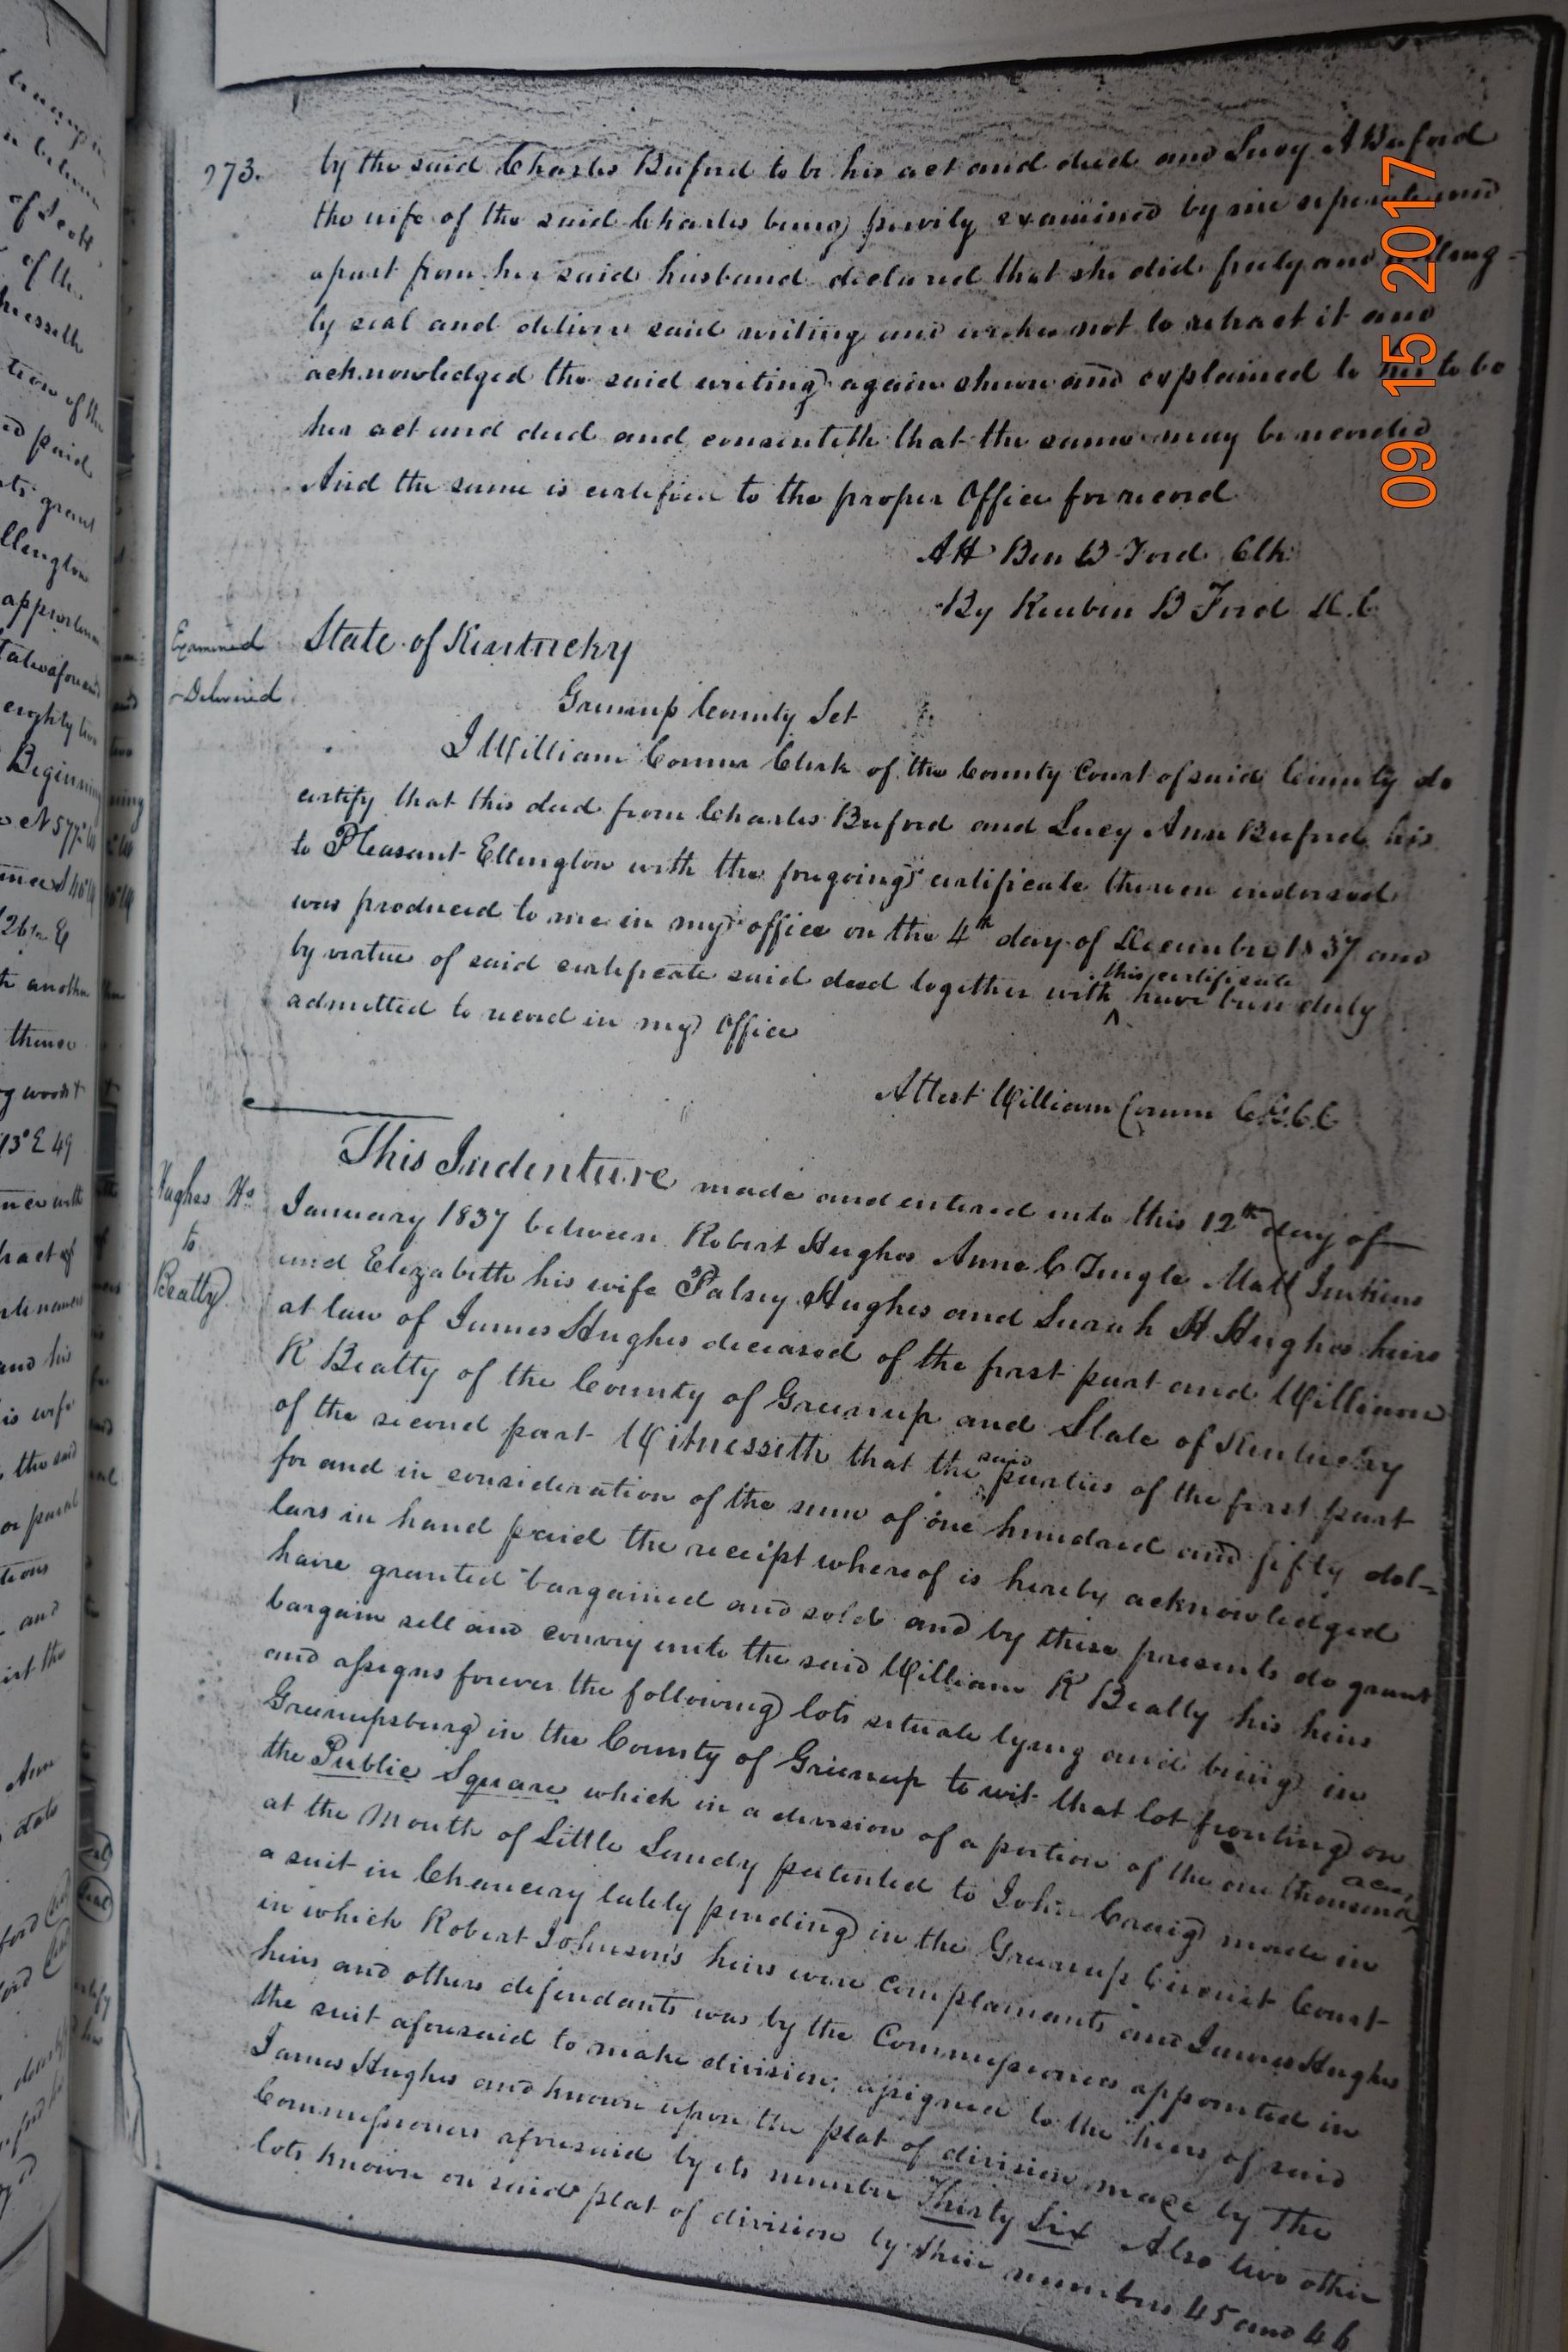 273.
by the said Charles Buford to be his act and deed and Lucy A Buford
the wife of the said Charles being privily examined by me seperate and
apart from her said husband declared that she did freely and willing-
ly seal and deliver said writing and wishes not to retract it and
acknowledged the said writing again shewn and explained to her to be
her act and deed and consenteth that the same may be recorded
And the same is certified to the proper Office for record
Att Ben B Ford Clk
By Reuben B Ford D.C.
Examined
Delivered
State of Kentucky
Greenup County Sct
I William Corum Clerk of the County Court of said County do
certify that this deed from Charles Buford and Lucy Ann Buford his
to Pleasant Ellington with the foregoing certificate thereon endorsed
was produced to me in my office on the 4th day of December 1837 and
by virtue of said certificate said deed together with ^ this certificate have been duly
admitted to record in my Office
Attest William Corum C.G.C.C
Hughes Hs
to
Beatty
This Indenture made and entered into this 12th day of
January 1837 between Robert Hughes Anne C Tingle Matt Jenkins
and Elizabeth his wife Patsey Hughes and Sarah H Hughes heirs
at law of James Hughes deceased of the first part and William
R Beatty of the County of Greenup and State of Kentucky
of the second part Witnesseth that the said parties of the first part
for and in consideration of the sum of one hundred and fifty dol-
lars in hand paid the receipt whereof is hereby acknowledged
have granted bargained and sold and by these presents do grant
bargain sell and convey unto the said William R Beatty his heirs
and assigns forever the following lots situate lying and being in
Greenupsburg in the County of Greenup to wit that lot fronting on
the Public Square which in a division of a portion of the one thousand acres
at the Mouth of Little Sandy patented to John Craig made in
a suit in Chancery lately pending in the Greenup Circuit Court
in which Robert Johnson's heirs were complainants and James Hughes
heirs and others defendants was by the Commissioners appointed in
the suit aforesaid to make division, assigned to the heirs of said
James Hughes and known upon the plat of division made by the
Commissioners aforesaid by its number Thirty Six Also two other
lots known on said plat of division by their numbers 45 and 46
09 15 2017